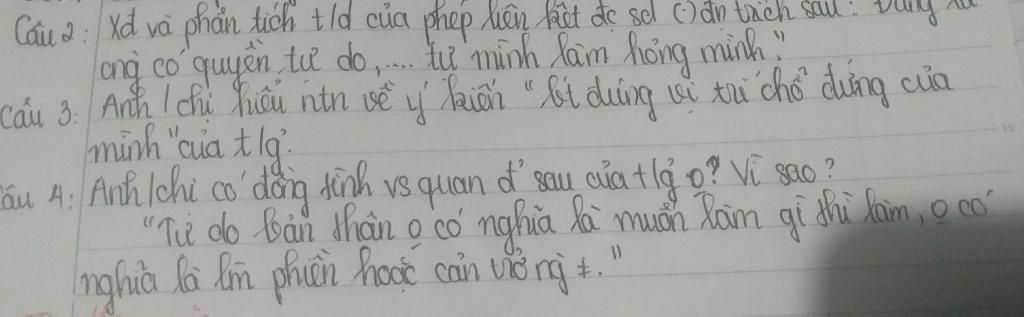 Câu 2: Xđ và phân tích t/d của phép liên kết đc sd () đn trích sau: "Đúng là
ong có quyền tự do,.... tự mình làm hỏng mình."
Câu 3: Anh / chị hiểu ntn về ý kiến "biết đúng vị trí chỗ đứng của
mình" của t/g.
Câu 4: Anh/chị có đồng tình vs quan đ' sau của t/g o? Vì sao?
"Tự do bản thân o có nghĩa là muốn làm gì thì làm, o có
nghĩa là làm phiền hoặc cản trở ng ≠."